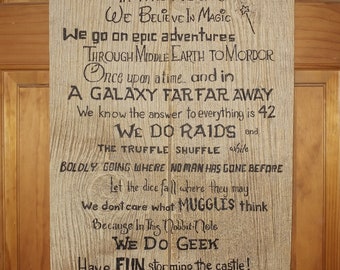 We Believe In Magic
We go on epic adventures
Through Middle Earth to Mordor
Once upon a time... and in
A GALAXY FAR FAR AWAY
We know the answer to everything is 42
WE DO RAIDS and
THE TRUFFLE SHUFFLE while
BOLDLY GOING WHERE NO MAN HAS GONE BEFORE
Let the dice fall where they may
We don't care what MUGGLES think
Because In This Hobbit-Hole
WE DO GEEK
Have FUN storming the castle!